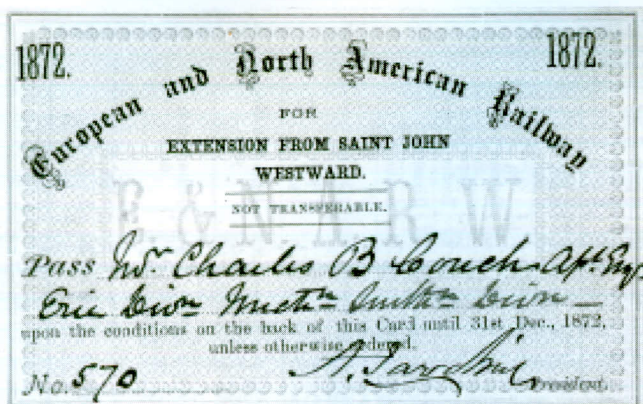 1872. 1872.
European and North American Railway
FOR
EXTENSION FROM SAINT JOHN
WESTWARD.
NOT TRANSFERABLE.
E. & N. A. R. W
Pass Mr. Charles B Couch
Erie Divn
upon the conditions on the back of this Card until 31st Dec., 1872,
unless otherwise ordered.
No. 570 President.